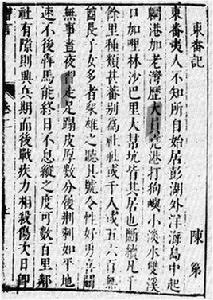 東番記
陳第
東番夷人不知所自始居彭湖外洋海島中起
魍港加老灣歷大員堯港打狗嶼小淡水雙溪
口加哩林沙巴里大幫坑皆其居也斷續凡千
餘里種類甚蕃別為社社或千人或五六百無
酋長子女多者衆雄之聽其號令性好勇喜鬥
無事晝夜習走足蹋皮厚數分履荊刺如平地
速不後奔馬能終日不息縱之度可數百里鄰
社有隙則興兵期而後戰疾力相殺傷次日即